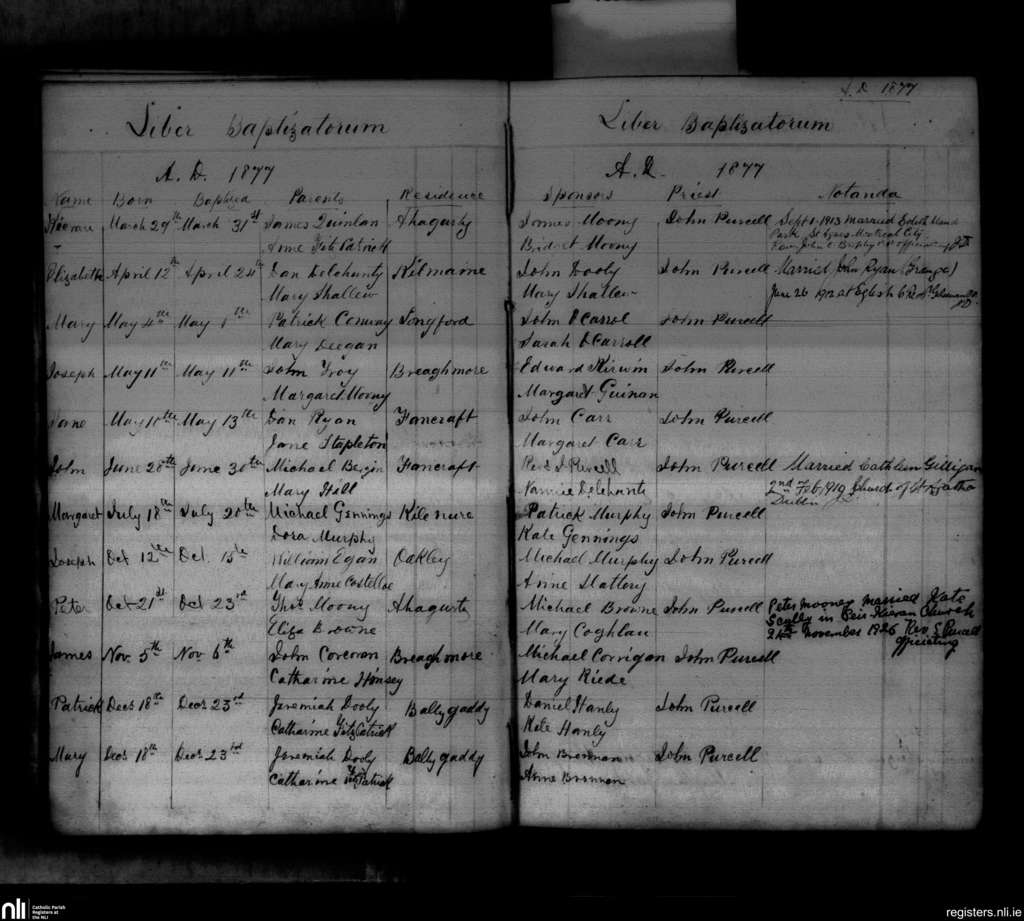 A.D. 1877
Liber Baptizatorum
Liber Baptizatorum
A.D. 1877
A.D. 1877
Name Born Baptized Parents Residence Sponsors Priest Notanda
March 29th March 31st James Quinlan Ahagurty James Moony John Purcell Sept 1. 1913 Married Edith
Anne FitzPatrick Bridget Moony Park, St Agnes Montreal City
John C. Brophy P.P. officiating
Elizabeth April 12th April 24th Dan Delehunty Kilmaine John Dooly John Purcell Married John Ryan (Grange)
Mary Shallew Mary Shallew June 26 1912 at Eglish
Mary May 4th May Patrick Conway Longford John O Carrol John Purcell
Mary Deegan Sarah O Carroll
Joseph May 11th May 11th John Troy Breaghmore Edward Kirwin John Purcell
Margaret Moony Margaret Guinan
Jane May 10th May 13th Dan Ryan Fancraft John Carr John Purcell
Jane Stapleton Margaret Carr
John June 28th June 30th Michael Bergin Fancraft Revd J. Purcell John Purcell Married Cathleen Gilligan
Mary Hill Nannie Delehunty 2nd Feb 1919 Church of St Agatha
Dublin
Margaret July 18th July 20th Michael Gennings Kilenure Patrick Murphy John Purcell
Dora Murphy Kate Gennings
Joseph Oct 12th Oct. 15th William Egan Oakley Michael Murphy John Purcell
Mary Anne Costelloe Anne Slattery
Peter Oct 21st Oct 23rd Thos Moony Ahagurty Michael Browne John Purcell Peter Mooney married Kate
Eliza Browne Mary Coghlan Scully in Seir Kieran Church
24th November 1926 Rev. S. Purcell
officiating
James Nov. 5th Nov. 6th John Corcoran Breaghmore Michael Corrigan John Purcell
Catharine Mary Riede
Patrick Decr 18th Decr 23rd Jeremiah Dooly Ballygaddy Daniel Hanly John Purcell
Catharine FitzPatrick Kate Hanly
Mary Decr 18th Decr 23rd Jeremiah Dooly Ballygaddy John Brennan John Purcell
Catharine FitzPatrick Anne Brennan
nli Catholic Parish
Registers at
the NLI
registers.nli.ie